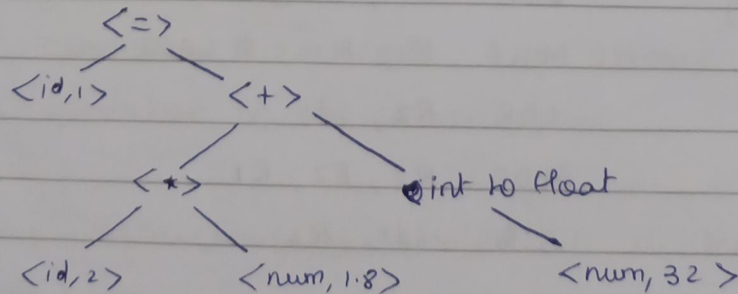 <=>
<id,1> <+>
<*> int to float
<id,2> <num, 1.8> <num, 32>